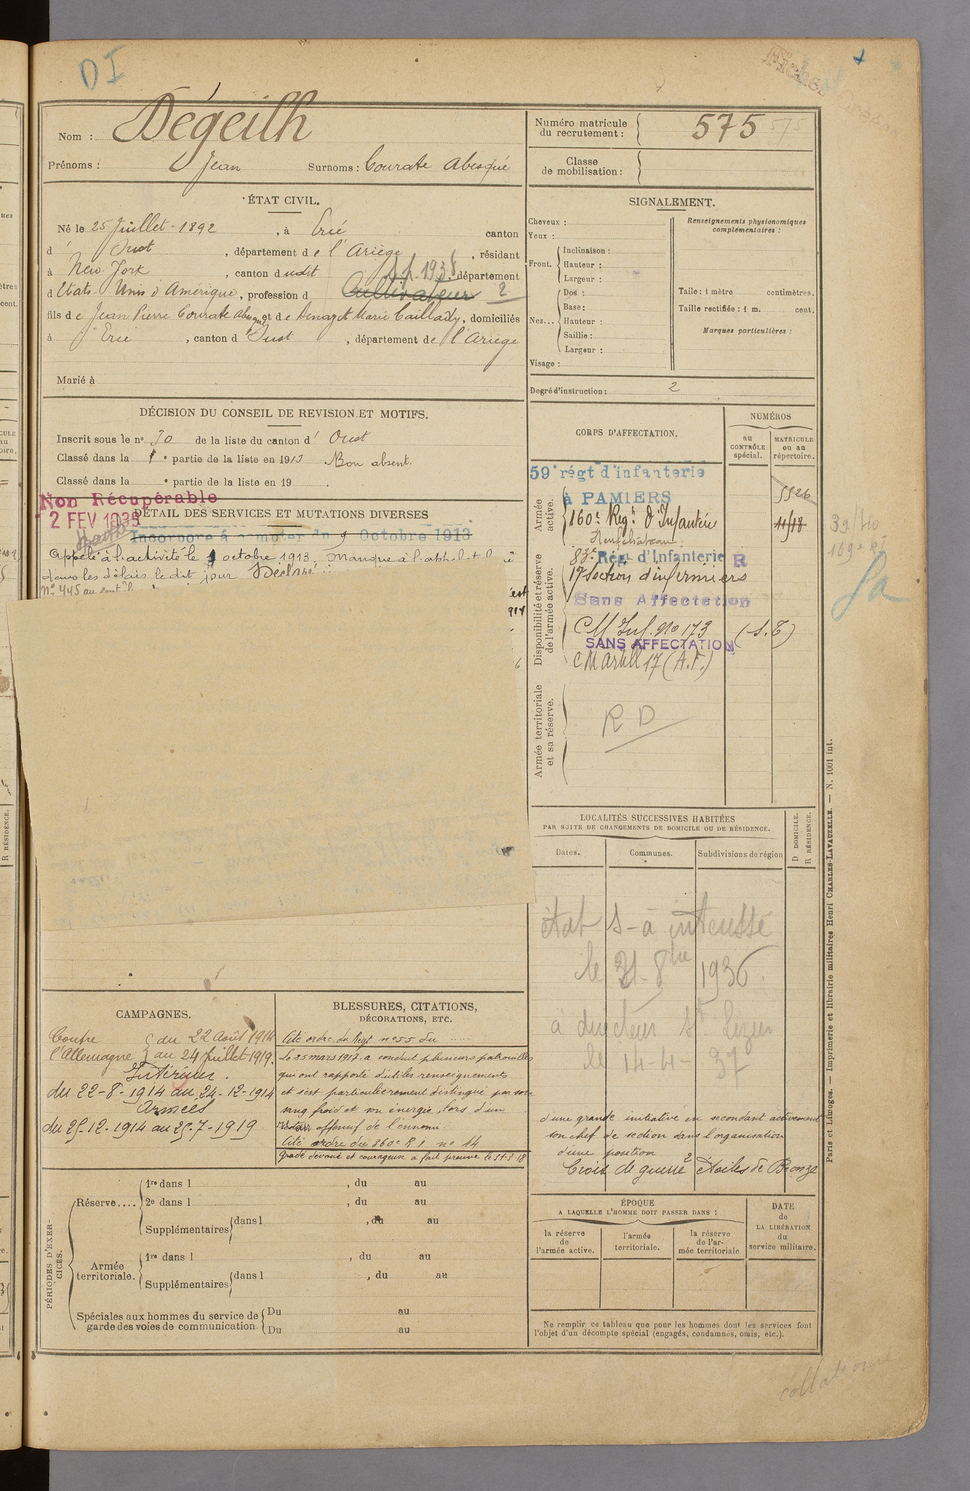 DI
Nom : Dégeilh
Prénoms : Jean Surnoms : Courate Abesqué
Numéro matricule du recrutement : 575
Classe de mobilisation :
ÉTAT CIVIL.
Né le 25 Juillet 1892, à Ercé canton
d' Oust, département de l'Ariège, résidant
à New York, canton dudit, département
d'Etats-Unis d'Amérique, profession d Cultivateur 2
fils de Jean Pierre Courate et de Marie Caillady, domiciliés
à Ercé, canton d'Oust, département de l'Ariège
Marié à
SIGNALEMENT.
Cheveux :
Yeux :
Front. Inclinaison :
Hauteur :
Largeur :
Nez... Dos :
Base :
Hauteur :
Saillie :
Largeur :
Visage :
Renseignements physionomiques complémentaires :
Taille : 1 mètre centimètres.
Taille rectifiée : 1 m. cent.
Marques particulières :
Degré d'instruction : 2
DÉCISION DU CONSEIL DE REVISION ET MOTIFS.
Inscrit sous le n° 30 de la liste du canton d' Oust
Classé dans la 1e partie de la liste en 1913 Bon absent.
Classé dans la e partie de la liste en 19 .
Non Récupérable
2 FEV 1938
DÉTAIL DES SERVICES ET MUTATIONS DIVERSES
Incorporé à compter du 9 Octobre 1913
Appelé à l'activité le octobre 1913. Manque à l'appel
dans les délais le dit jour Déclaré
n° 445
CORPS D'AFFECTATION.
NUMÉROS
au CONTRÔLE spécial.
MATRICULE ou au répertoire.
Armée active.
59e régt d'infanterie
à PAMIERS
5526
160e Regt d'Infanterie
Neufchateau
Disponibilité et réserve de l'armée active.
83e Rég. d'Infanterie R
17e Section d'infirmiers
Sans Affectation
C M Inf. No 173 (S.E)
SANS AFFECTATION
C M Artill 17 (A.F.)
Armée territoriale et sa réserve.
R D
39/40
LOCALITÉS SUCCESSIVES HABITÉES
PAR SUITE DE CHANGEMENTS DE DOMICILE OU DE RÉSIDENCE.
Dates. Communes. Subdivisions de région
D DOMICILE.
R RÉSIDENCE.
état s-à
le 31-8bre 1936.
a directeur St
le 14-4-37
CAMPAGNES.
Contre l'Allemagne
du 22 Août 1914
au 24 Juillet 1919.
Intérieur.
du 22-8-1914 au 24-12-1914
Armées
du 25-12-1914 au 25-7-1919
BLESSURES, CITATIONS,
DÉCORATIONS, ETC.
Cité ordre du Regt n° 55 du .....
Le 25 mars 1917 a conduit plusieurs patrouilles
qui ont rapporté d'utiles renseignements
et s'est particulièrement distingué par son
sang froid et son énergie, lors d'un
retour offensif de l'ennemi
Cité ordre du 360e R I no 14
gradé dévoué et courageux a fait preuve le
d'une grande initiative en secondant activement
son chef de section dans l'organisation
d'une position
Croix de guerre 2 Etoiles de Bronze
PÉRIODES D'EXERCICES.
Réserve.... 1re dans l , du au
2e dans l , du au
Supplémentaires dans l , du au
Armée territoriale. 1re dans l , du au
Supplémentaires dans l , du au
Spéciales aux hommes du service de garde des voies de communication. Du au
Du au
ÉPOQUE
A LAQUELLE L'HOMME DOIT PASSER DANS :
la réserve de l'armée active.
l'armée territoriale.
la réserve de l'armée territoriale
DATE de LA LIBÉRATION du service militaire.
Ne remplir ce tableau que pour les hommes dont les services font
l'objet d'un décompte spécial (engagés, condamnés, omis, etc.).
Paris et Limoges. — Imprimerie et librairie militaires Henri CHARLES-LAVAUZELLE. — N. 1001 int.
collationné